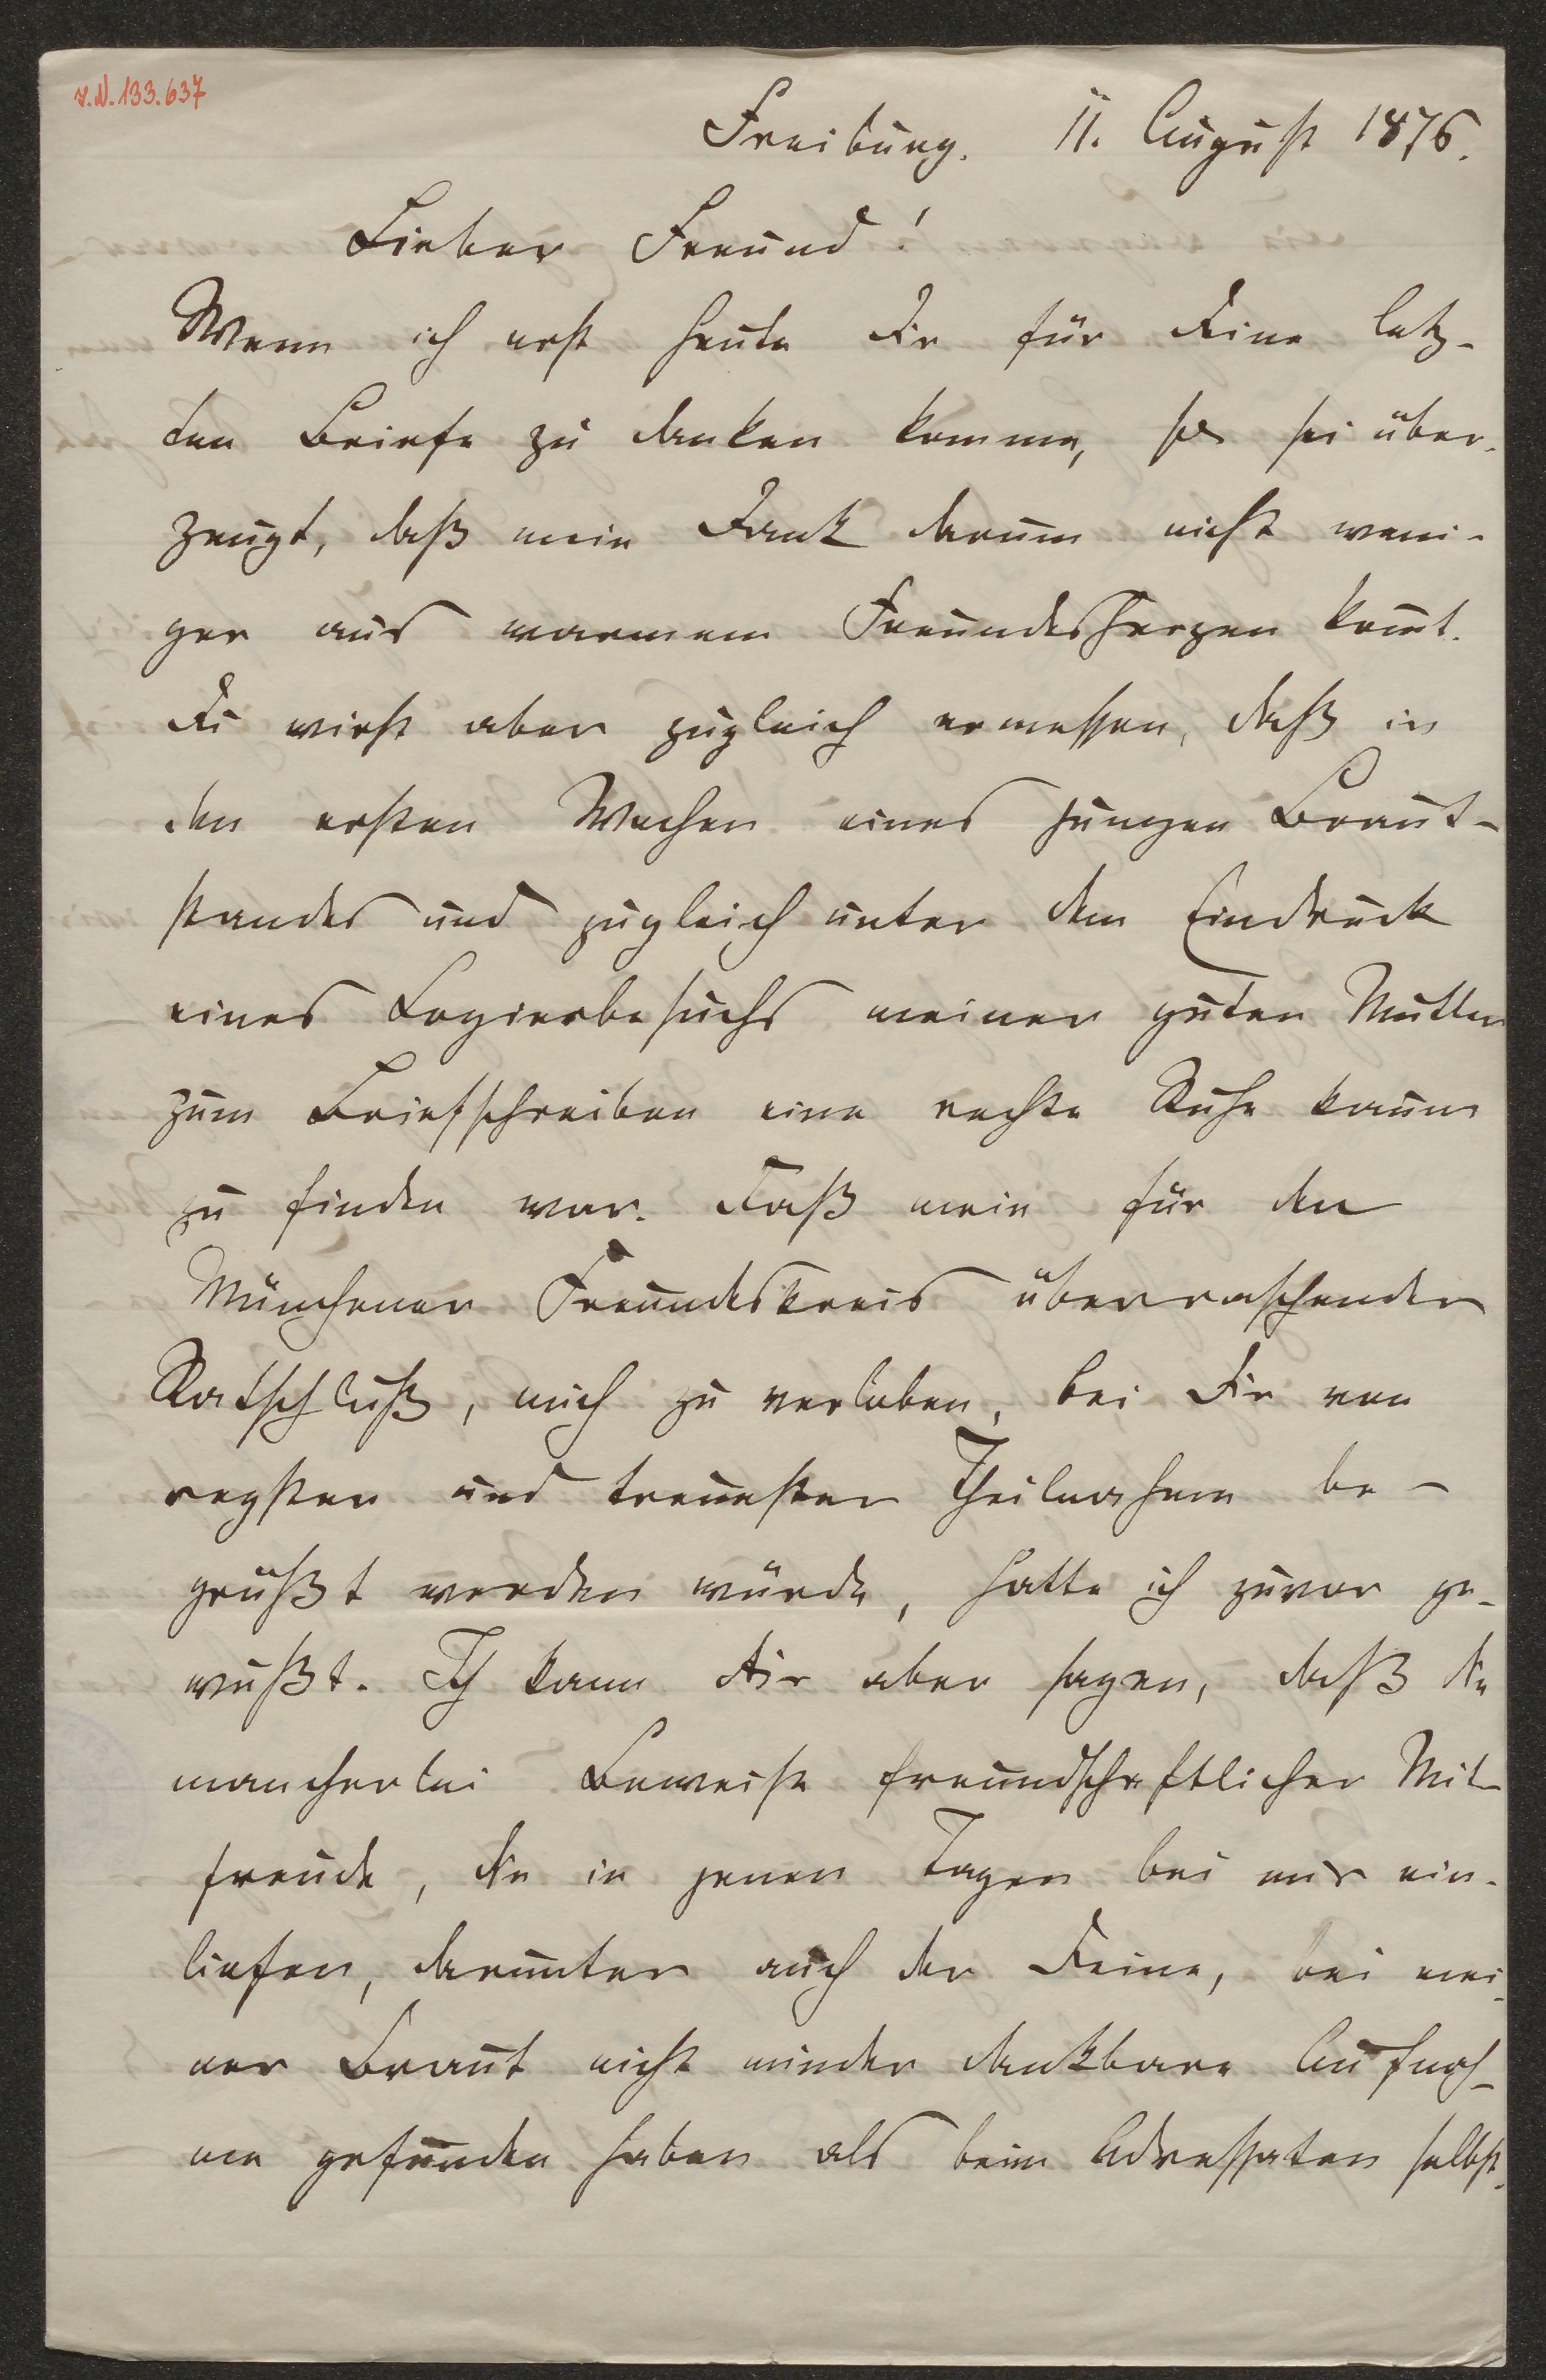 I.N. 133.637
Freiburg. 11. August 1876.
Lieber Freund!
Wenn ich erst heute Dir für Deine letz-
ten Briefe zu danken komme, so sei über-
zeugt, daß mein Dank darum nicht weni-
ger aus warmem Freundesherzen kom̅t.
Du wirst aber zugleich ermessen, daß in
den ersten Wochen eines jungen Braut-
standes und zugleich unter dem Eindruck
eines Logierbesuchs meiner guten Mutter
zum Briefschreiben eine rechte Ruhe kaum
zu finden war. Daß mein für den
Münchener Freundeskreis überraschender
Ratschluß, mich zu verloben, bei Dir von
regster und treuester Theilnahme be-
grüßt werden würde, hatte ich zuvor ge-
wußt. Ich kann Dir aber sagen, daß die
mancherlei Beweise freundschaftlicher Mit-
freude, die in jenen Tagen bei mir ein-
liefen, darunter auch der Deine, bei mei-
ner Braut nicht minder dankbare Aufnah-
me gefunden haben als beim Adressaten selbst.